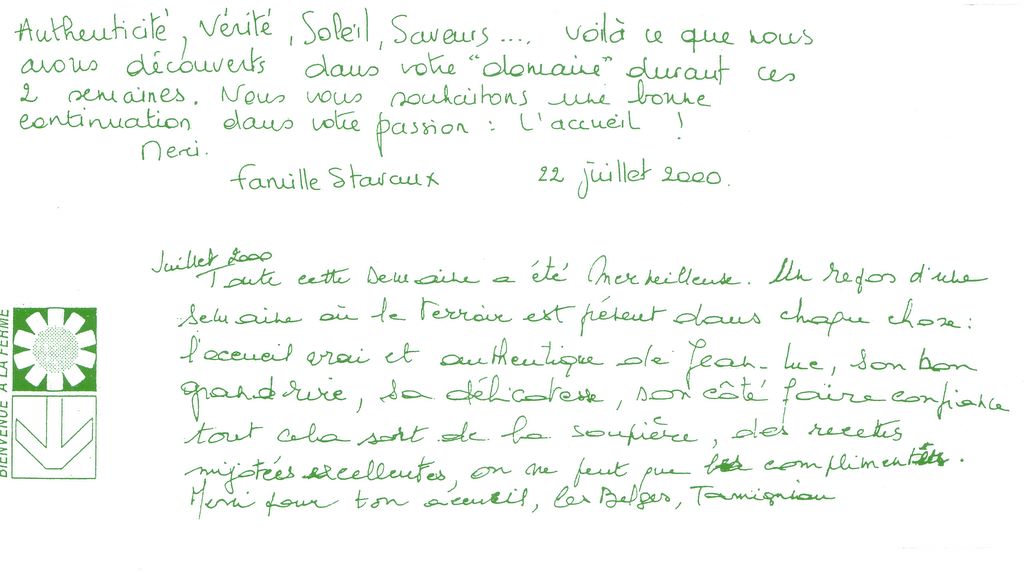 Authenticité, Vérité, Soleil, Saveurs.... voilà ce que nous
avons découverts dans votre "domaine" durant ces
2 semaines. Nous vous souhaitons une bonne
continuation dans votre passion : L'accueil !
Merci.
famille Stavaux 22 juillet 2000.
Juillet 2000
Toute cette semaine a été merveilleuse. Un repos d'une
semaine où le terroir est présent dans chaque chose :
l'accueil vrai et authentique de Jean-Luc, son bon
grand rire, sa délicatesse, son côté faire confiance
tout cela sort de la soupière, des recettes
mijotées excellentes, on ne peut que les complimenter.
Merci pour ton accueil, les Belges,
BIENVENUE À LA FERME